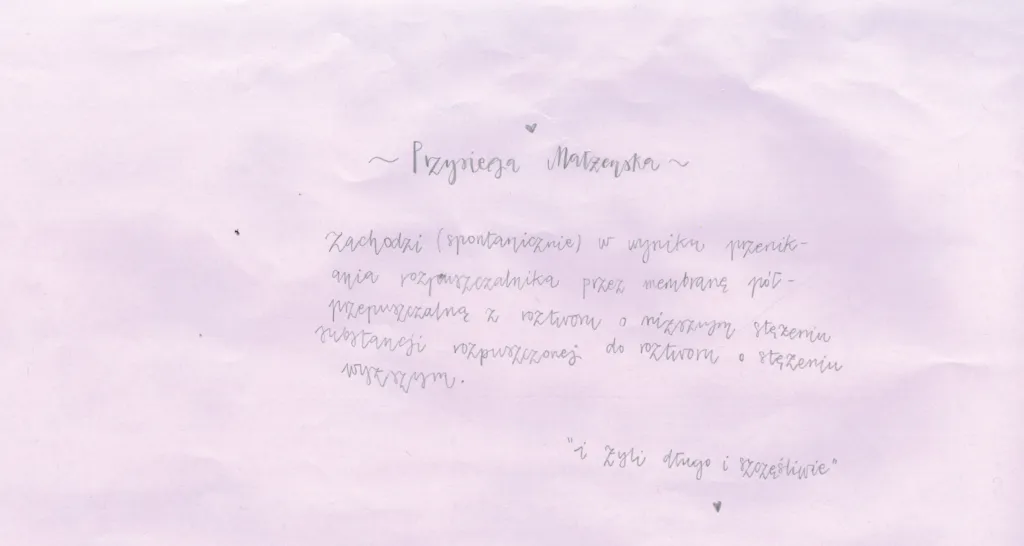 ~ Przysięga Małżeńska ~
Zachodzi (spontanicznie) w wyniku przenik-
ania rozpuszczalnika przez membranę pół-
przepuszczalną z roztworu o niższym stężeniu
substancji rozpuszczonej do roztworu o stężeniu
wyższym.
"i żyli długo i szczęśliwie"